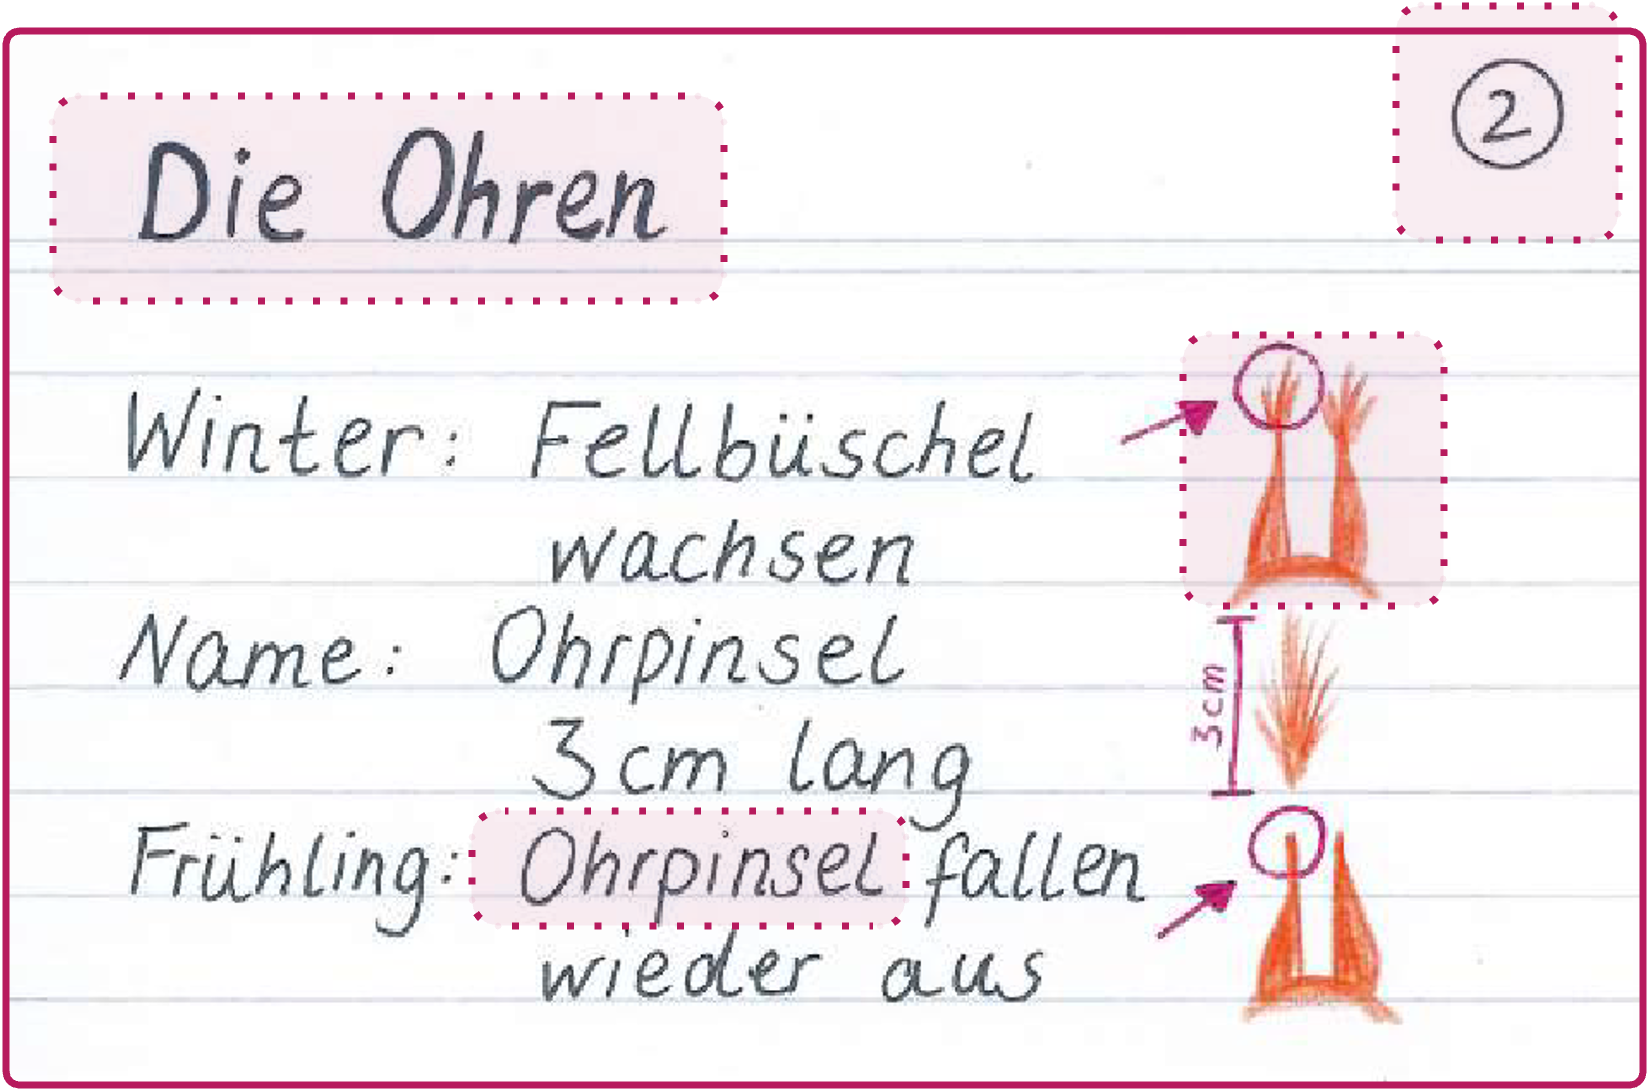 2
Die Ohren
Winter: Fellbüschel
wachsen
Name: Ohrpinsel
3 cm lang
3 cm
Frühling: Ohrpinsel fallen
wieder aus